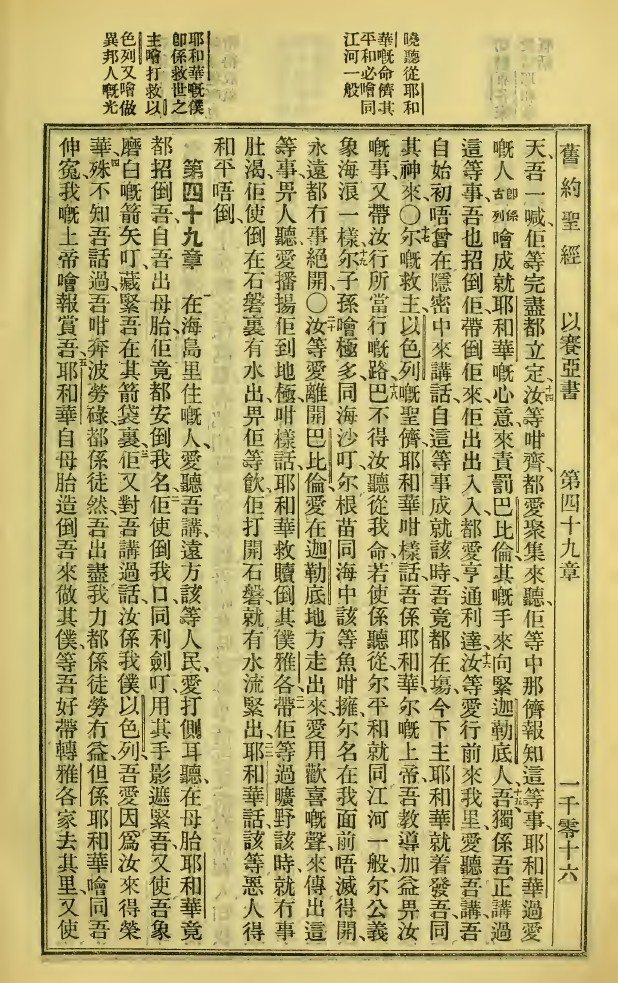 曉聽從耶和
華嘅命儕其
平和必噲同
江河一般
耶和華嘅僕
卽係救世之
主噲打救以
色列又噲做
異邦人嘅光
舊約聖經 以賽亞書 第四十九章 一千零十六
天、吾一喊佢等完盡都立定、十四汝等咁齊、都愛聚集來聽、佢等中那儕報知這等事、耶和華過愛
嘅人卽係古列噲成就耶和華嘅心意、來責罰巴比倫、其嘅手來向緊迦勒底人、十五吾獨係吾正講過
這等事、吾也招倒佢、帶倒佢來、佢出出入入都愛亨通利達、十六汝等愛行前來我里、愛聽吾講、吾
自始初唔曾在隱密中來講話、自這等事成就該時、吾竟都在塲、今下主耶和華就着發吾、同
其神來、〇十七尔嘅救主、以色列嘅聖儕耶和華咁樣話、吾係耶和華尔嘅上帝、吾教導加益畀汝
嘅事、又帶汝行所當行嘅路、十八巴不得汝聽從我命、若使係聽從、尔平和就同江河一般、尔公義
象海浪一樣、十九尔子孫噲極多、同海沙叮、尔根苗同海中該等魚咁擁、尔名在我面前唔滅得開、
永遠都冇事絕開、〇二十汝等愛離開巴比倫、愛在迦勒底地方走出來、愛用歡喜嘅聲、來傳出這
等事畀人聽、愛播揚佢到地極、咁樣話、耶和華救贖倒其僕雅各、二一帶佢等過曠野該時、就冇事
肚渴、佢使倒在石磐裏有水出畀佢等飲、佢打開石磐、就有水流緊出、二二耶和華話、該等惡人得
和平唔倒、
第四十九章 一在海島里住嘅人、愛聽吾講、遠方該等人民、愛打側耳聽、在母胎耶和華竟
都招倒吾、自吾出母胎佢竟都安倒我名、二佢使倒我口同利劍叮、用其手影遮緊吾、又使吾象
磨白嘅箭矢叮、藏緊吾在其箭袋裏、三佢又對吾講過話、汝係我僕以色列、吾愛因爲汝來得榮
華、四殊不知吾話過、吾咁奔波勞碌、都係徒然、吾出盡我力、都係徒勞冇益、但係耶和華噲同吾
伸寃、我嘅上帝噲報賞吾、五耶和華自母胎造倒吾來做其僕、等吾好帶轉雅各家去其里、又使